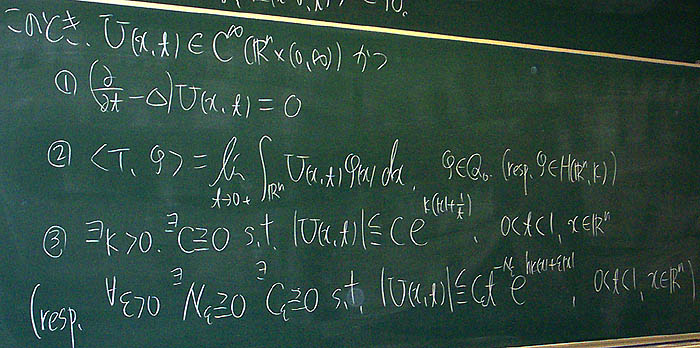 このとき、U(x,t) ∈ C^∞(ℝⁿ×(0,∞)) かつ
① (∂/∂t − Δ)U(x,t) = 0
② <T, φ> = lim_{t→0+} ∫_{ℝⁿ} U(x,t)φ(x)dx, φ∈Q₀. (resp. φ∈H(ℝⁿ,K))
③ ∃k>0. ∃C≧0 s.t. |U(x,t)| ≦ C e^{k(|x|+1/t)}, 0<t<1, x∈ℝⁿ
(resp. ∀ε>0 ∃N_ε≧0 ∃C_ε≧0 s.t. |U(x,t)| ≦ C_ε t^{-N_ε} e^{h_K(x)+ε|x|}, 0<t<1, x∈ℝⁿ)